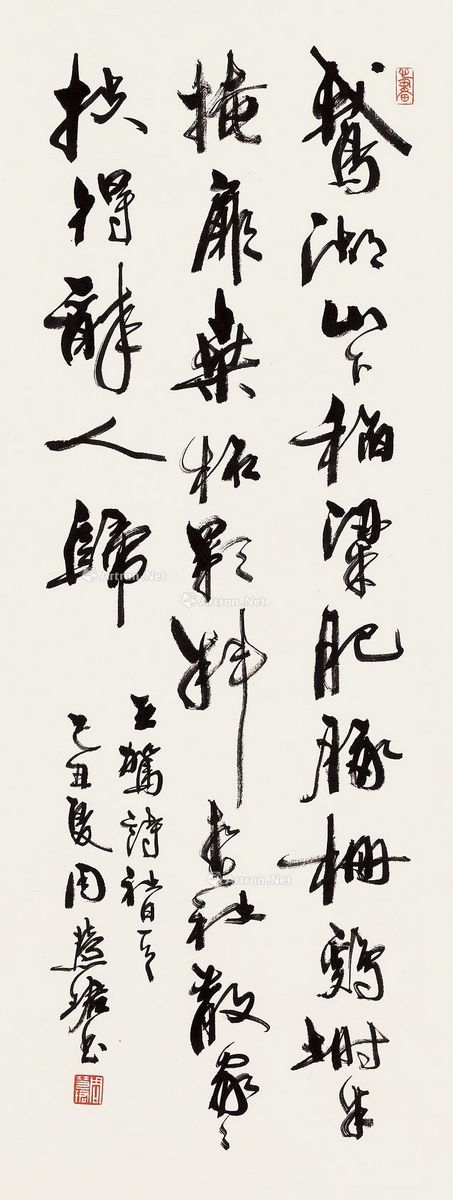 鵞湖山下稻梁肥豚栅鷄塒半
掩扉桑柘影斜春社散家々
扶得醉人歸
王駕詩社日一首
己丑夏周慧珺书
Artron.Net
Artron.Net
Artron.Net